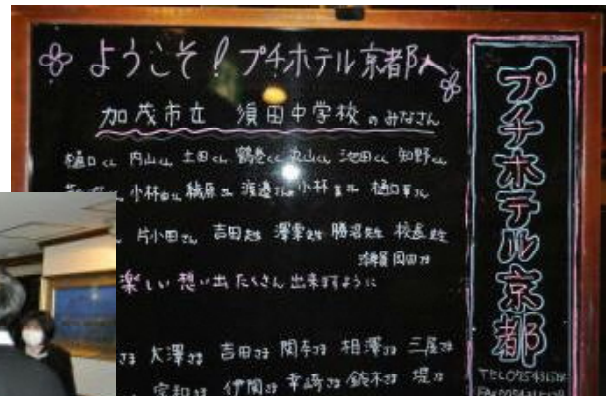 ようこそ！プチホテル京都へ
加茂市立 須田中学校のみなさん
樋口くん 内山くん 土田くん 鶴巻くん 丸山くん 池田くん 知野くん
小林 渡邉 小林 樋口
片小田さん 吉田先生 澤栗先生 勝沼先生 校長先生
岡田さま
楽しい想い出たくさん出来ますように
さま 大澤さま 吉田さま 関本さま 相澤さま 三屋さま
伊関さま 幸崎さま 鈴木さま 堤さま
プチホテル京都